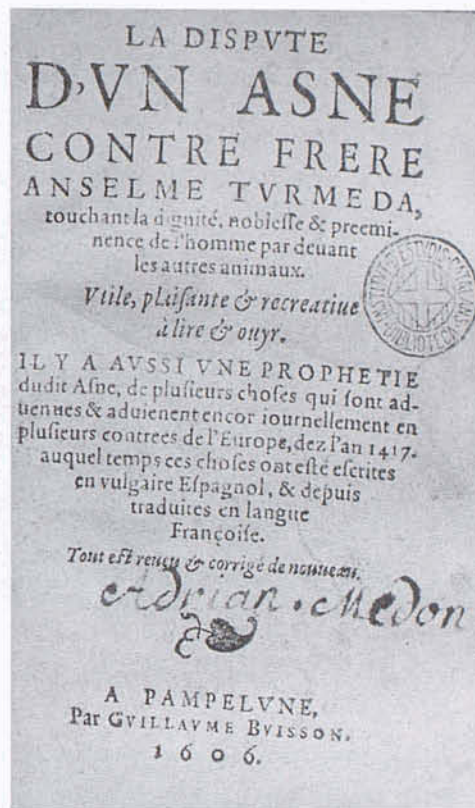 LA DISPVTE
D'VN ASNE
CONTRE FRERE
ANSELME TVRMEDA,
touchant la dignité, noblesse & preemi-
nence de l'homme par deuant
les autres animaux.
Vtile, plaisante & recreatiue
à lire & ouyr.
IL Y A AVSSI VNE PROPHETIE
dudit Asne, de plusieurs choses qui sont ad-
uenues & aduienent encor iournellement en
plusieurs contrees de l'Europe, dez l'an 1417.
auquel temps ces choses ont esté escrites
en vulgaire Espagnol, & depuis
traduites en langue
Françoise.
Tout est reueu & corrigé de nouueau.
Adrian . Medon
A PAMPELVNE,
Par GVILLAVME BVISSON.
1606.